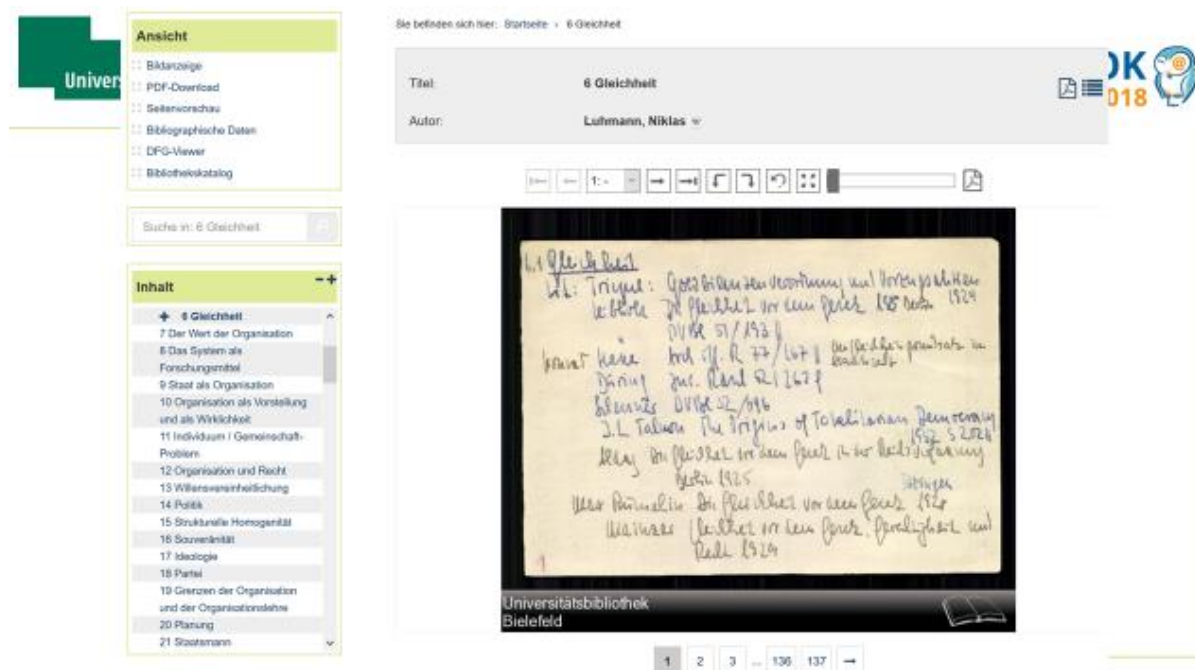 Univer
Ansicht
Bildanzeige
PDF-Download
Seitenvorschau
Bibliographische Daten
DFG-Viewer
Bibliothekskatalog
Suche in: 6 Gleichheit
Inhalt
6 Gleichheit
7 Der Wert der Organisation
8 Das System als
Forschungsmittel
9 Staat als Organisation
10 Organisation als Vorstellung
und als Wirklichkeit
11 Individuum / Gemeinschaft-
Problem
12 Organisation und Recht
13 Willensvereinheitlichung
14 Politik
15 Strukturelle Homogenität
16 Souveränität
17 Ideologie
18 Partei
19 Grenzen der Organisation
und der Organisationslehre
20 Planung
21 Staatsmann
Sie befinden sich hier: Startseite › 6 Gleichheit
Titel: 6 Gleichheit
Autor: Luhmann, Niklas
OK
2018
1: -
6.1 Gleichheit
Lit: Triepel: Goldbilanzenverordnung und Vorzugsaktien 1924
Leibholz Die Gleichheit vor dem Gesetz
DVBl 51/193
77/167
Düring
DVBl 52/696
J.L. Talmon The Origins of Totalitarian Democracy
1952
Die Gleichheit vor dem Gesetz
Berlin 1925
Max Rümelin Die Gleichheit vor dem Gesetz 1928
Gleichheit vor dem Gesetz, Gerechtigkeit und
Recht 1929
1
Universitätsbibliothek
Bielefeld
1 2 3 ... 136 137 →